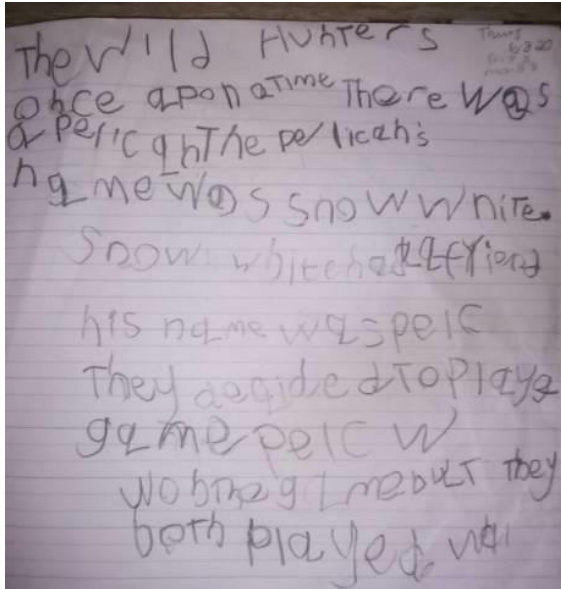 The Wild Hunters
once apon a Time There was
a pelican The pelican's
name was snow white.
Snow white had a friend
his name was pelc
They decided To play a
game pelc w
won the game but They
both played wal